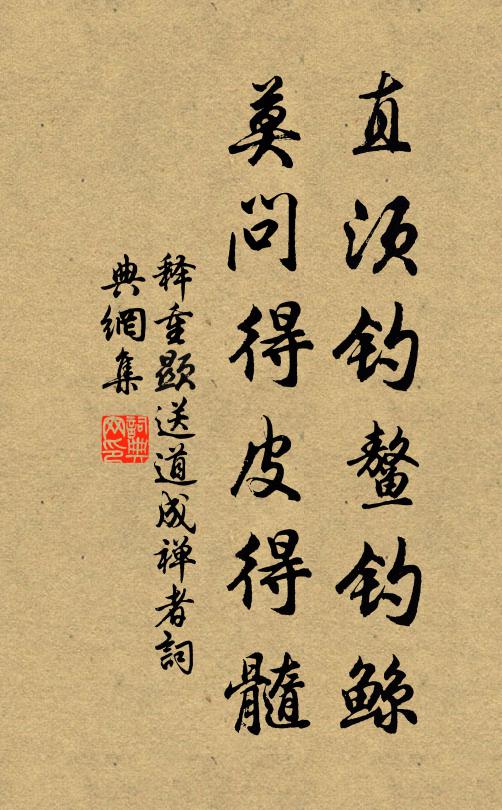 直须钓鳌钓鲸
莫问得皮得髓
释重显送道成禅者詞
典網集
詞典网印